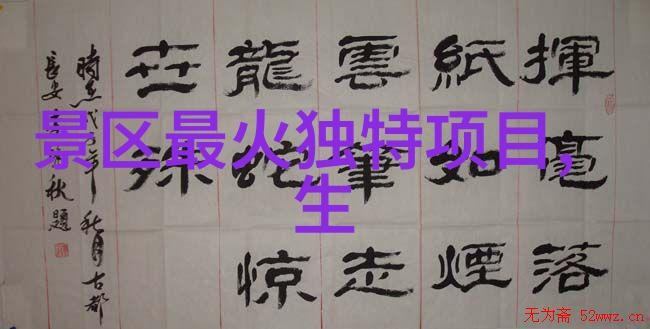 景区最火独特项目,
生
揮毫落
紙如煙
雲筆走
龍蛇惊
世殊
年秋月古都
長安秋題
无为斋 52wwz.cn